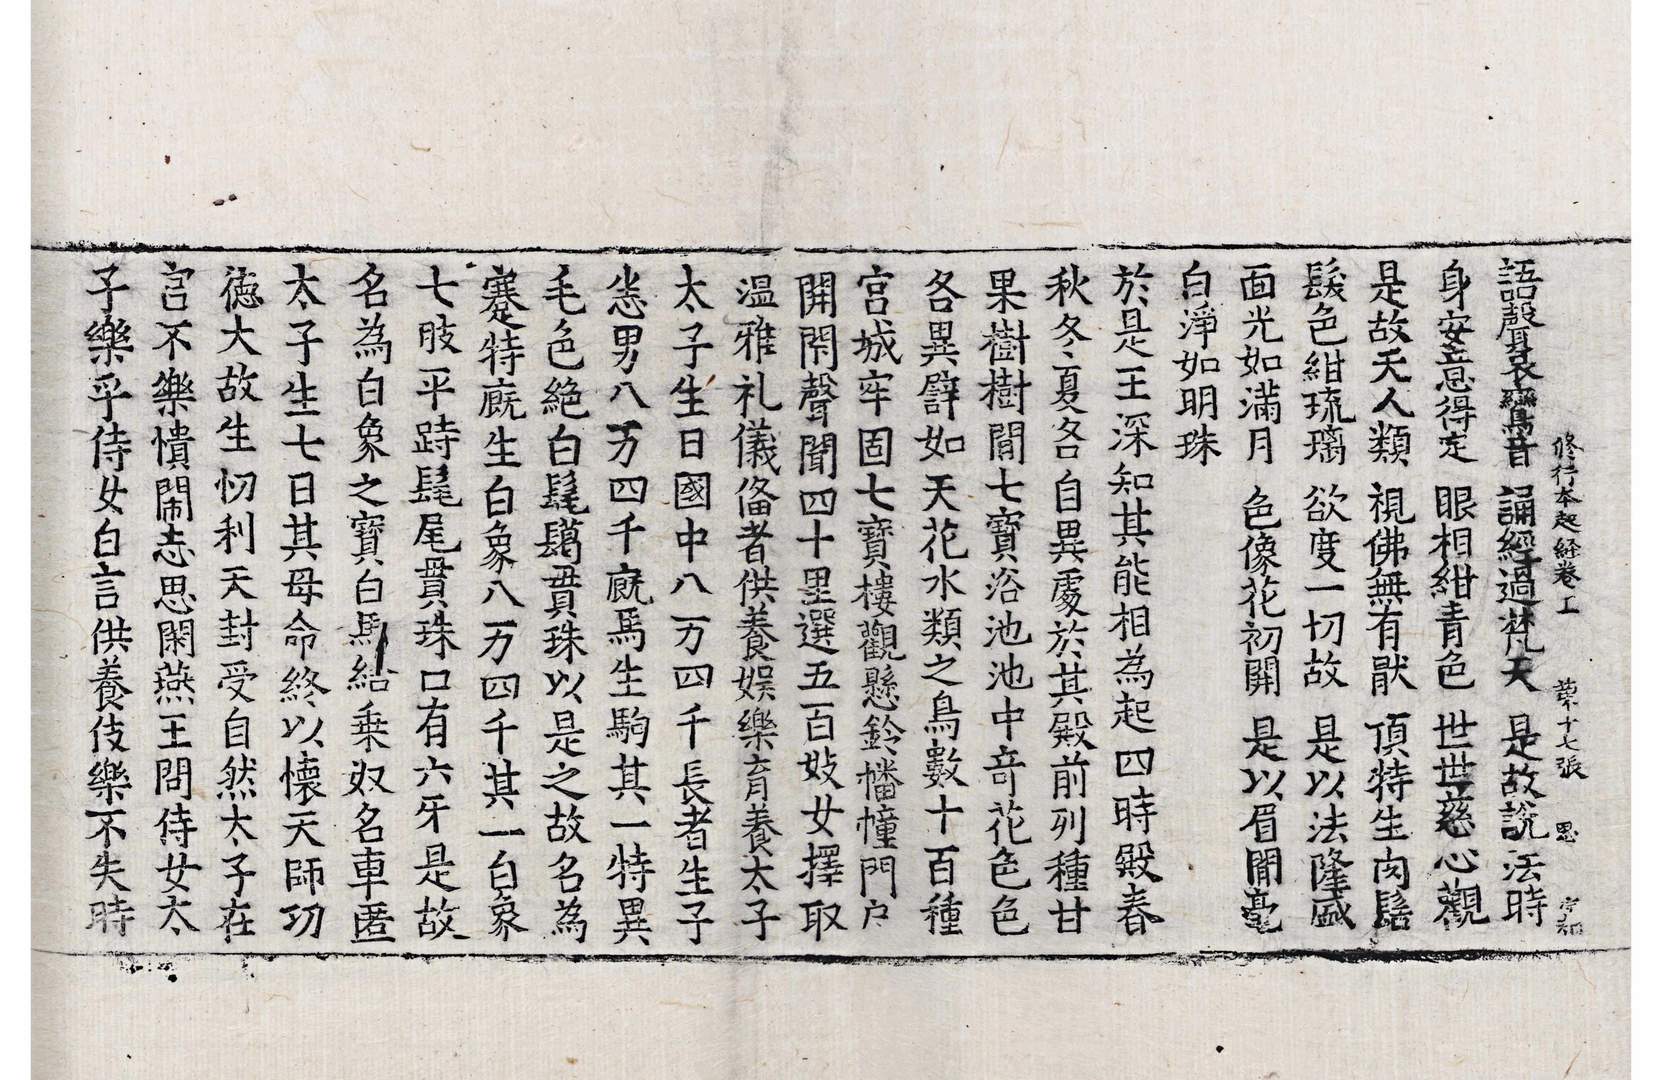 修行本起経卷上 第十七張 思 守和
語聲哀鸞音 誦經過梵天 是故說法時
身安意得定 眼相紺青色 世世慈心觀
是故天人類 視佛無有猒 頂特生肉髻
髮色紺琉璃 欲度一切故 是以法隆盛
面光如滿月 色像花初開 是以眉間毫
白淨如明珠
於是王深知其能相為起四時殿春
秋冬夏各自異處於其殿前列種甘
果樹樹間七寶浴池池中竒花色色
各異譬如天花水類之鳥數十百種
宮城牢固七寶樓觀懸鈴幡幢門戶
開閇聲聞四十里選五百妓女擇取
温雅礼儀俻者供養娛樂育養太子
太子生日國中八万四千長者生子
悉男八万四千廐馬生駒其一特異
毛色絶白髦鬣貫珠以是之故名為
蹇特廐生白象八万四千其一白象
七肢平跱髦尾貫珠口有六牙是故
名為白象之寶白馬給乗奴名車匿
太子生七日其母命終以懐天師功
徳大故生忉利天封受自然太子在
宮不樂憒閙志思閑燕王問侍女太
子樂乎侍女白言供養伎樂不失時